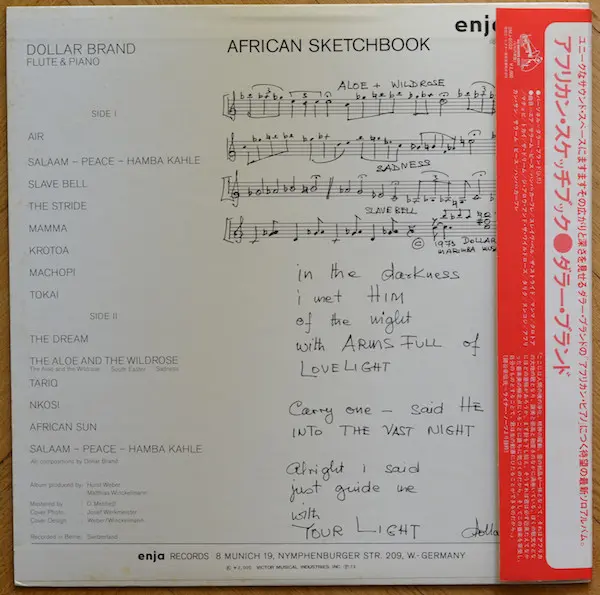 enja
DOLLAR BRAND
FLUTE & PIANO
AFRICAN SKETCHBOOK
SIDE I
AIR
SALAAM – PEACE – HAMBA KAHLE
SLAVE BELL
THE STRIDE
MAMMA
KROTOA
MACHOPI
TOKAI
SIDE II
THE DREAM
THE ALOE AND THE WILDROSE
The Aloe and the Wildrose South Easter Sadness
TARIQ
NKOSI
AFRICAN SUN
SALAAM – PEACE – HAMBA KAHLE
All compositions by Dollar Brand
Album produced by: Horst Weber
Matthias Winckelmann
Mastered by
Cover Photo: Josef Werkmeister
Cover Design: Weber/Winckelmann
Recorded in Berne, Switzerland
ALOE + WILDROSE
SADNESS
SLAVE BELL
© 1973 DOLLAR
MARIMBA MUS
in the darkness
i met HIM
of the night
with ARMS FULL of
LOVELIGHT
Carry one – said HE
INTO THE VAST NIGHT
Alright i said
just guide me
with
YOUR LIGHT
Dolla
enja RECORDS 8 MUNICH 19, NYMPHENBURGER STR. 209, W.-GERMANY
VICTOR MUSICAL INDUSTRIES, INC.
ユニークなサウンド・スペースにますますその広がりと深さを見せるダラー・ブランドの「アフリカン・ピアノ」につぐ待望の最新ソロアルバム。
アフリカン・スケッチブック●ダラー・ブランド